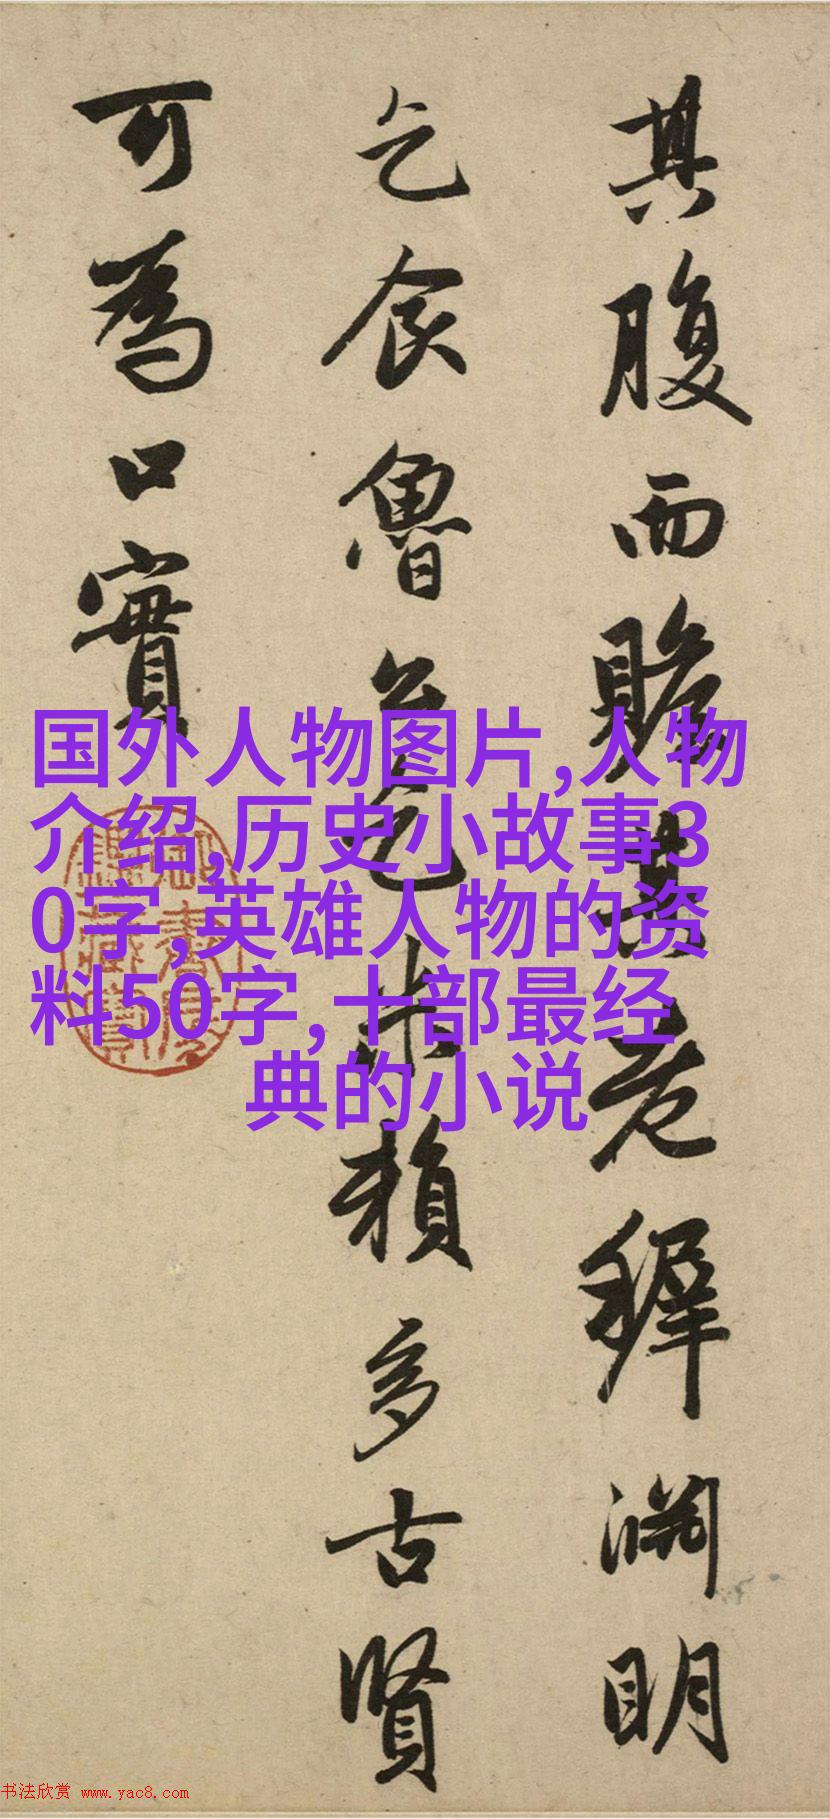 其腹而贍其老穉淵明
乞食魯公乞米賴多古賢
可為口實
国外人物图片,人物
介绍,历史小故事3
0字,英雄人物的资
料50字,十部最经
典的小说
书法欣赏 www.yac8.com